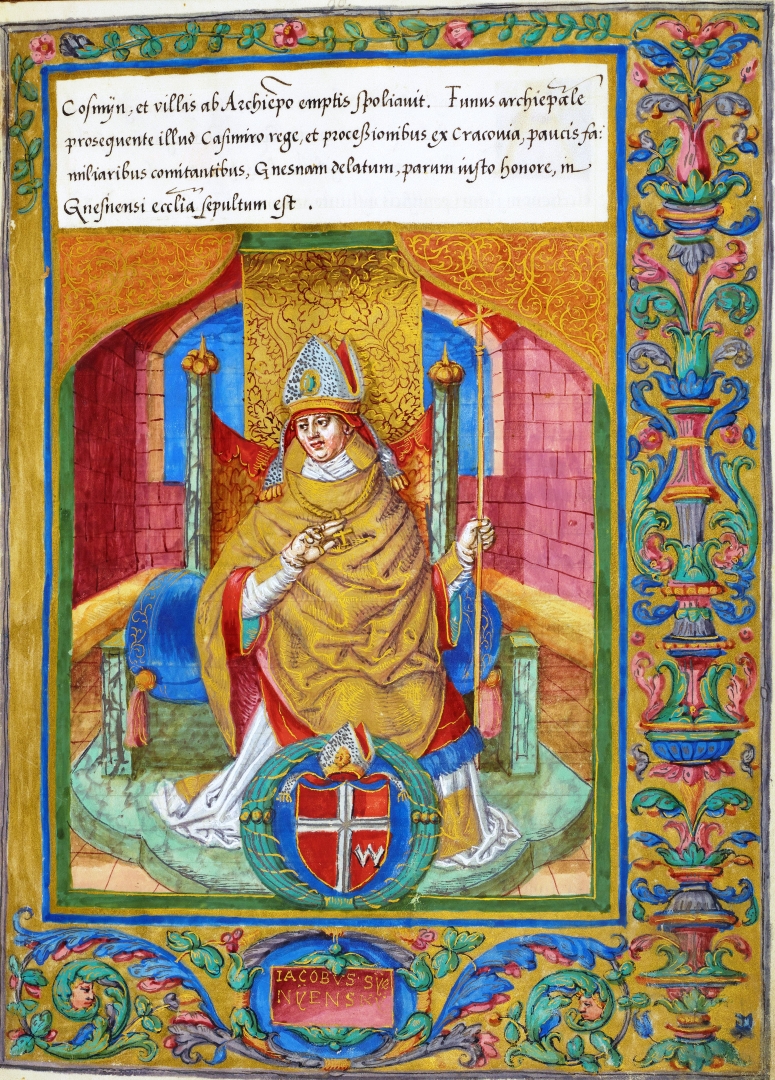 Cosmÿn, et villis ab Archiepo emptis spoliauit. Funus archiepale
prosequente illud Casimiro rege, et proceßionibus ex Cracouia, paucis fa:
miliaribus comitantibus, Gnesnam delatum, parum iusto honore, in
Gnesnensi ecclia sepultum est .
W
IACOBVS SÿE
NÿENS